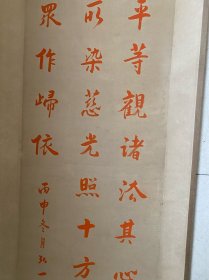 平等觀諸法其心
所染慈光照十方
眾作歸依
丙申冬月弘一